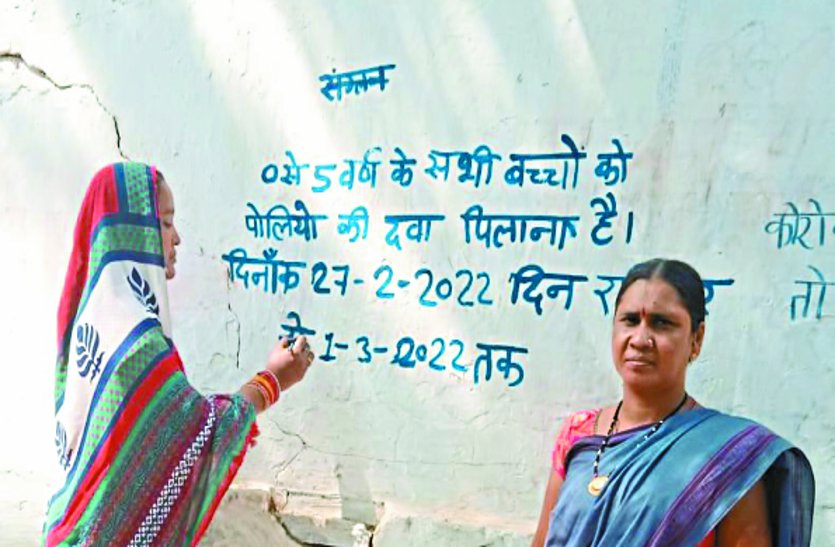 संगलन
0 से 5 वर्ष के सभी बच्चो को
पोलियो की दवा पिलाना है।
दिनाँक 27-2-2022 दिन
से 1-3-2022 तक
तो